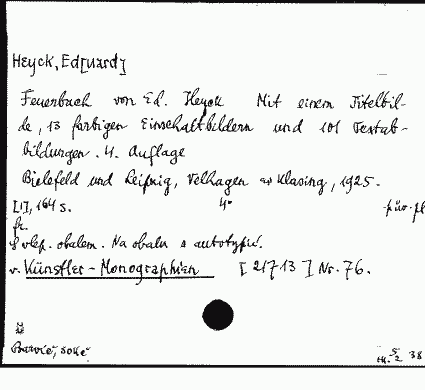 Heyck, Ed[uard]
Feuerbach von Ed. Heyck Mit einem Titelbil-
de, 13 farbigen Einschaltbildern und 101 Textab-
bildungen. 4. Auflage
Bielefeld und Leipzig, Velhagen & Klasing, 1925.
[1], 164 s. 4° pův. pl.
fr.
S vlep. obalem. Na obalu s autotypií.
v. Künstler-Monographien [21713] Nr. 76.
38